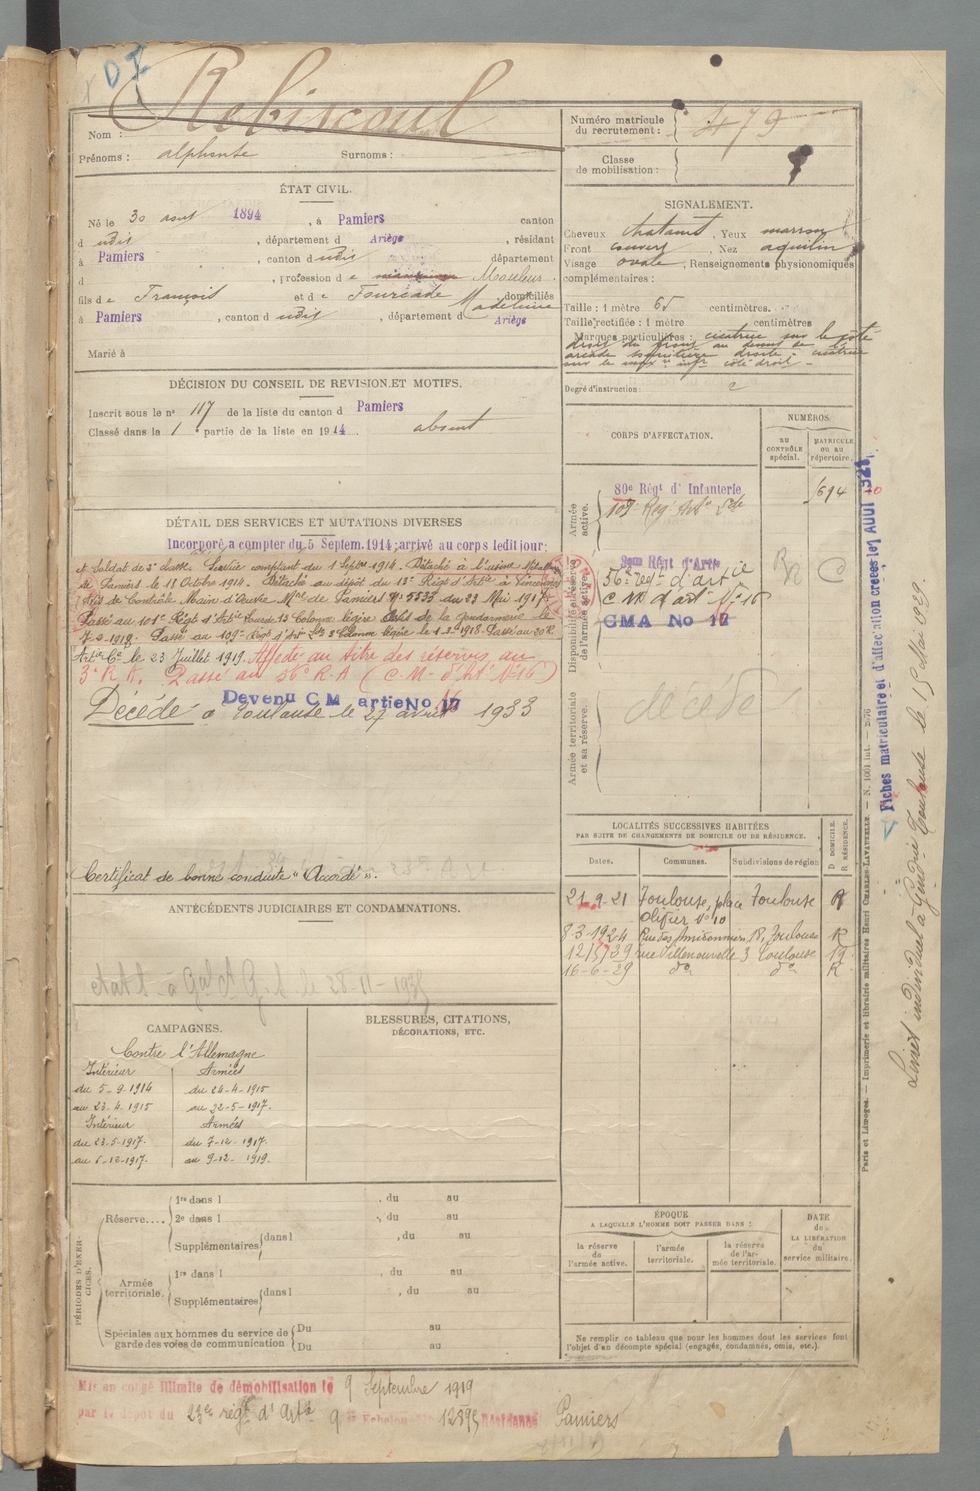 D I
Nom : Rebiscoul
Prénoms : alphonse Surnoms :
Numéro matricule du recrutement : 479
Classe de mobilisation :
ÉTAT CIVIL.
Né le 30 août 1894, à Pamiers canton
d udit, département d Ariège, résidant
à Pamiers, canton d udit département
d , profession de Mouleur
fils de François et de Fourcade Madeleine domiciliés
à Pamiers, canton d udit, département d Ariège
Marié à
SIGNALEMENT.
Cheveux chatains, Yeux marrons
Front couvert, Nez aquilin
Visage ovale, Renseignements physionomiques
complémentaires :
Taille : 1 mètre 65 centimètres.
Taille rectifiée : 1 mètre centimètres
Marques particulières : cicatrice sur le côté
droit du front au dessus de
arcade sourcilière droite - cicatrice
sur le max. inf. côté droit -
Degré d'instruction : 2
DÉCISION DU CONSEIL DE REVISION ET MOTIFS.
Inscrit sous le n° 117 de la liste du canton d Pamiers
Classé dans la 1 partie de la liste en 1914 absent
CORPS D'AFFECTATION.
NUMÉROS
AU CONTRÔLE spécial.
MATRICULE ou au répertoire.
Armée active.
80e Régt d'Infanterie
109e Reg Art Lde
Disponibilité et réserve de l'armée active.
3me Régt d'Artie
56e regt d'artie C
C M d'art N° 16
CMA No 17
Armée territoriale et sa réserve.
décédé
DÉTAIL DES SERVICES ET MUTATIONS DIVERSES
Incorporé a compter du 5 Septem. 1914; arrivé au corps ledit jour;
et Soldat de 2e classe. Service comptant du 1 Septbre 1914. Détaché à l'usine
de Pamiers le 13 Octobre 1914. Détaché au dépôt du 13e Régt d'Artie à Vincennes
Avis de Contrôle Main d'Œuvre Mre de Pamiers N° 5535 du 23 Mai 1917.
Passé au 101e Régt d'Artie Lourde 13 Colonne légère de la gendarmerie le
Passé au 109e Régt d'Art Lde 3e Colonne légère le 1-3-1918. Passé au 20e R.
Artie Cne le 23 Juillet 1919. Affecté au titre des réserves au
3e R.A. Passé au 56e R.A (C.M. d'Art N°16)
Devenu CM artie No 17
Décédé à Toulouse le 27 avril 1933
Certificat de bonne conduite "Accordé".
ANTÉCÉDENTS JUDICIAIRES ET CONDAMNATIONS.
LOCALITÉS SUCCESSIVES HABITÉES
PAR SUITE DE CHANGEMENTS DE DOMICILE OU DE RÉSIDENCE.
Dates. Communes. Subdivisions de région D DOMICILE. R RÉSIDENCE.
21-9-21 Toulouse, place Toulouse R
Olifier N° 10
8-3-1924 Rue des Amidonniers, 18, Toulouse R
rue Villenouvelle 3 Toulouse
16-6-29 do do R
CAMPAGNES.
Contre l'Allemagne
Intérieur Armées
du 5-9-1914 du 24-4-1915
au 23-4-1915 au 22-5-1917.
Intérieur Armées
du 23-5-1917. du 7-12-1917.
au 6-12-1917. au 9-12-1919.
BLESSURES, CITATIONS,
DÉCORATIONS, ETC.
PÉRIODES D'EXERCICES.
Réserve.... 1re dans l , du au
2e dans l , du au
Supplémentaires dans l , du au
Armée territoriale. 1re dans l , du au
Supplémentaires dans l , du au
Spéciales aux hommes du service de garde des voies de communication Du au
Du au
ÉPOQUE
A LAQUELLE L'HOMME DOIT PASSER DANS :
la réserve de l'armée active.
l'armée territoriale.
la réserve de l'armée territoriale.
DATE de LA LIBÉRATION du service militaire.
Ne remplir ce tableau que pour les hommes dont les services font
l'objet d'un décompte spécial (engagés, condamnés, omis, etc.).
Mis en congé illimité de démobilisation le 9 Septembre 1919
par le dépot du 23e regt d'Artie 9e Echelon Résidence Pamiers
Paris et Limoges. — Imprimerie et librairie militaires Henri CHARLES-LAVAUZELLE.
Fiches matriculaire et d'affectation créées le 1 AOUT 1928
Livret individuel à Gendrie Toulouse le 15 Mai 1929.